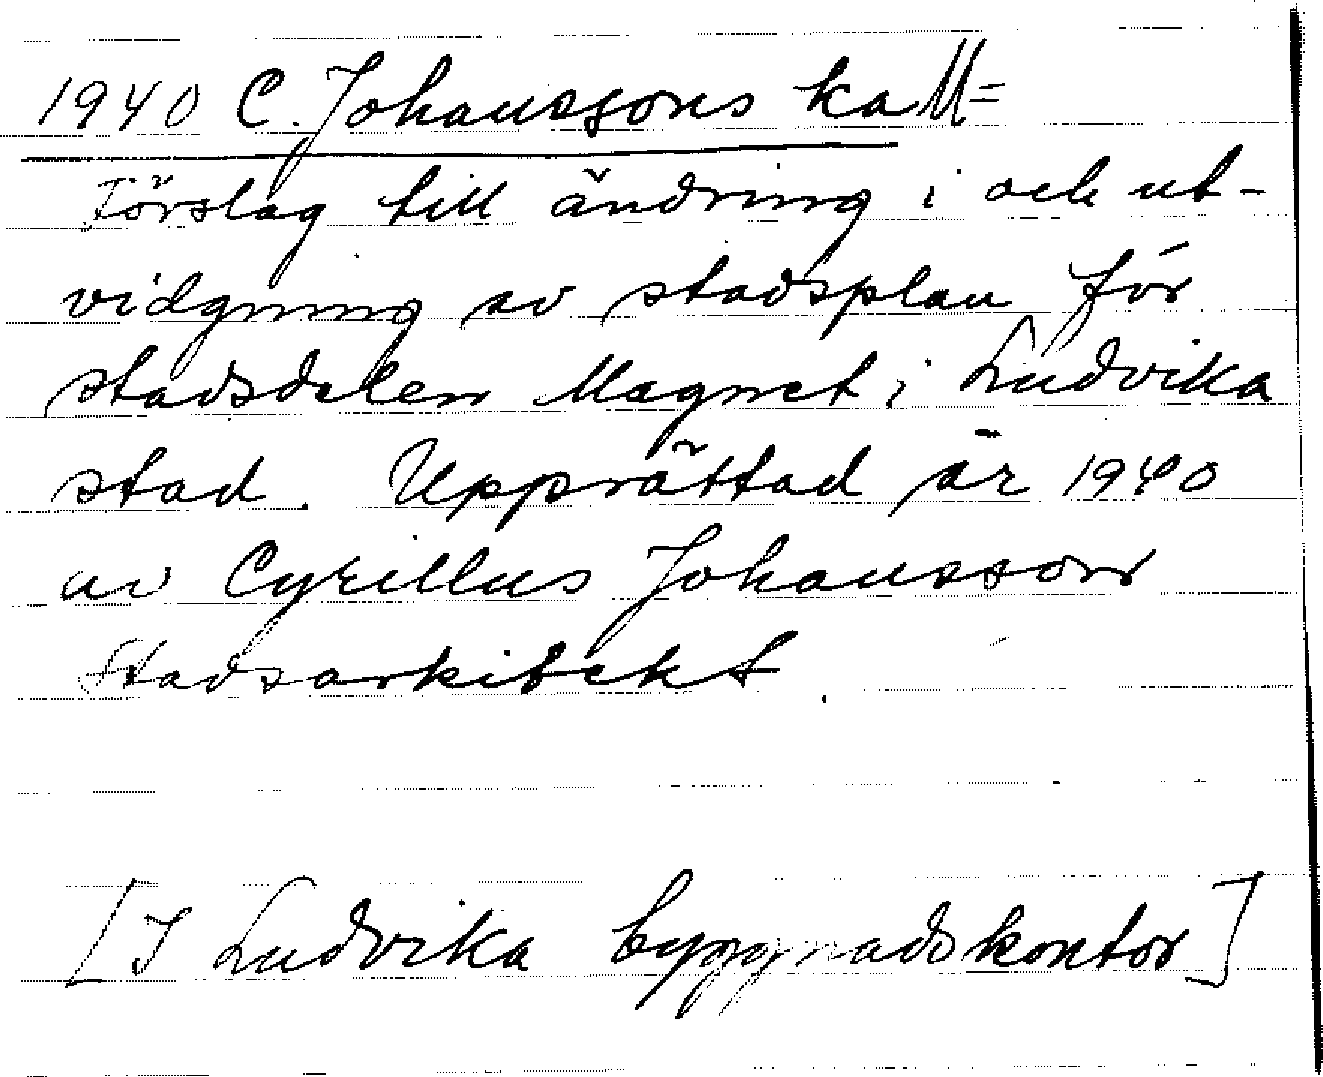 1940 C. Johanssons ka M=
Förslag till ändring i och ut-
vidgning av stadsplan för
stadsdelen Magnet i Ludvika
stad. Upprättad år 1940
av Cyrillus Johansson
Stadsarkitekt.
[I Ludvika byggnadskontor]